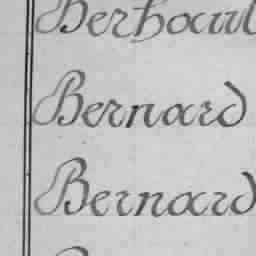 Berhaut
Bernard
Bernard